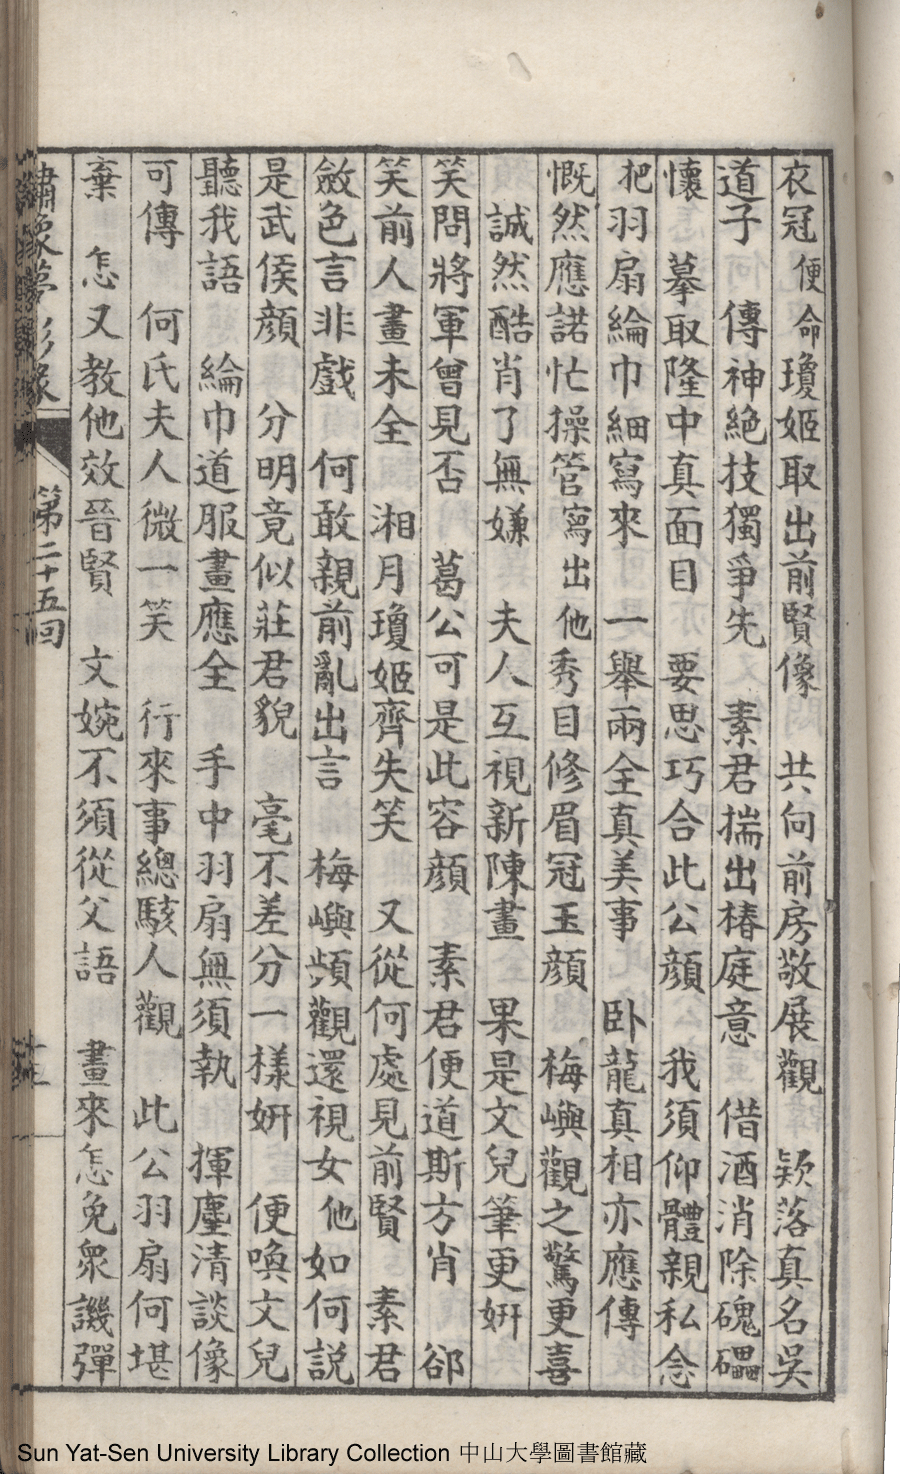 衣冠　便命瓊姬取出前賢像　共向前房敬展觀　欵落真名吳
道子　傳神絕技獨爭先　素君揣出椿庭意　借酒消除磈礧
懷　摹取隆中真面目　要思巧合此公顏　我須仰體親私念
把羽扇綸巾細寫來　一舉兩全真美事　卧龍真相亦應傳
慨然應諾忙操管寫出他秀目修眉冠玉顏　梅嶼觀之驚更喜
誠然酷肖了無嫌　夫人互視新陳畫　果是文兒筆更妍
笑問將軍曾見否　葛公可是此容顏　素君便道斯方肖　郤
笑前人畫未全　湘月瓊姬齊失笑　又從何處見前賢　素君
斂色言非戲　何敢親前亂出言　梅嶼頻觀還視女他如何説
是武侯顏　分明竟似莊君貌　毫不差分一樣妍　便喚文兒
聽我語　綸巾道服畫應全　手中羽扇無須執　揮麈清談像
可傳　何氏夫人微一笑　行來事總駭人觀　此公羽扇何堪
棄　怎又教他效晉賢　文婉不須從父語　畫來怎免衆譏彈
繡像夢影緣　第二十五回
Sun Yat-Sen University Library Collection 中山大學圖書館藏